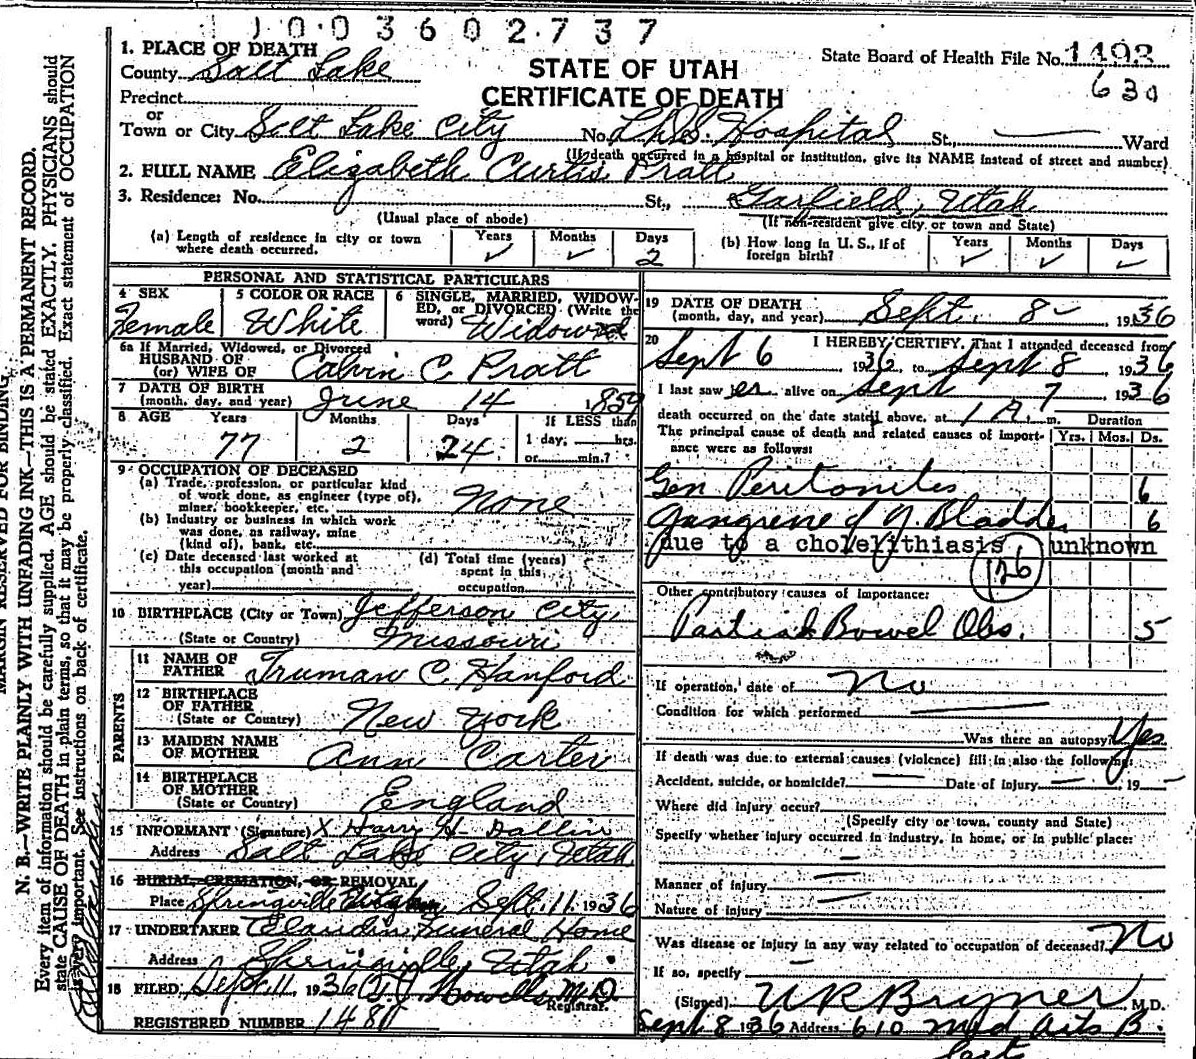 1003602737
State Board of Health File No. 1493
630
STATE OF UTAH
CERTIFICATE OF DEATH
1. PLACE OF DEATH
County Salt Lake
Precinct
or
Town or City Salt Lake City No. L.D.S. Hospital St., Ward
(If death occurred in a hospital or institution, give its NAME instead of street and number)
2. FULL NAME Elizabeth Curtis Pratt
3. Residence: No. St., Garfield, Utah
(Usual place of abode) (If non-resident give city or town and State)
(a) Length of residence in city or town where death occurred. Years ✓ Months ✓ Days 2 (b) How long in U. S., if of foreign birth? Years ✓ Months ✓ Days ✓
PERSONAL AND STATISTICAL PARTICULARS
4 SEX Female
5 COLOR OR RACE White
6 SINGLE, MARRIED, WIDOWED, or DIVORCED (Write the word) Widowed
6a If Married, Widowed, or Divorced
HUSBAND OF
(or) WIFE OF Calvin C Pratt
7 DATE OF BIRTH
(month, day, and year) June 14 1859
8 AGE Years 77 Months 2 Days 24 If LESS than 1 day, hrs. or min.?
9 OCCUPATION OF DECEASED
(a) Trade, profession, or particular kind
of work done, as engineer (type of),
miner, bookkeeper, etc. None
(b) Industry or business in which work
was done, as railway, mine
(kind of), bank, etc.
(c) Date deceased last worked at
this occupation (month and
year)
(d) Total time (years)
spent in this
occupation
10 BIRTHPLACE (City or Town) Jefferson City,
(State or Country) Missouri
PARENTS
11 NAME OF
FATHER Truman C. Hanford
12 BIRTHPLACE
OF FATHER
(State or Country) New York
13 MAIDEN NAME
OF MOTHER Ann Carter
14 BIRTHPLACE
OF MOTHER
(State or Country) England
15 INFORMANT (Signature) X Harry H. Dallin
Address Salt Lake City, Utah
16 BURIAL, CREMATION, OR REMOVAL
Place Springville Sept. 11 1936
17 UNDERTAKER Claudin Funeral Home
Address Springville, Utah.
18 FILED Sept. 11, 1936 Howells M.D.
Registrar.
REGISTERED NUMBER 1480
19 DATE OF DEATH
(month, day, and year) Sept. 8 1936
20 I HEREBY CERTIFY, That I attended deceased from
Sept 6 1936, to Sept 8 1936
I last saw her alive on Sept 7 1936
death occurred on the date stated above, at 1 A. m. Duration
The principal cause of death and related causes of importance were as follows: Yrs. Mos. Ds.
Gen Peritonitis 6
Gangrene of G. Bladder 6
due to a cholelithiasis unknown
126
Other contributory causes of importance:
Partial Bowel Obs. 5
If operation, date of No
Condition for which performed
Was there an autopsy? Yes
If death was due to external causes (violence) fill in also the following:
Accident, suicide, or homicide? Date of injury 19
Where did injury occur?
(Specify city or town, county and State)
Specify whether injury occurred in industry, in home, or in public place:
Manner of injury
Nature of injury
Was disease or injury in any way related to occupation of deceased? No
If so, specify
(Signed) U R Bryner M.D.
Sept 8 1936 Address 610 Med Arts B.
MARGIN RESERVED FOR BINDING
N. B.—WRITE PLAINLY WITH UNFADING INK—THIS IS A PERMANENT RECORD.
Every item of information should be carefully supplied. AGE should be stated EXACTLY. PHYSICIANS should
state CAUSE OF DEATH in plain terms, so that it may be properly classified. Exact statement of OCCUPATION
is very important. See instructions on back of certificate.